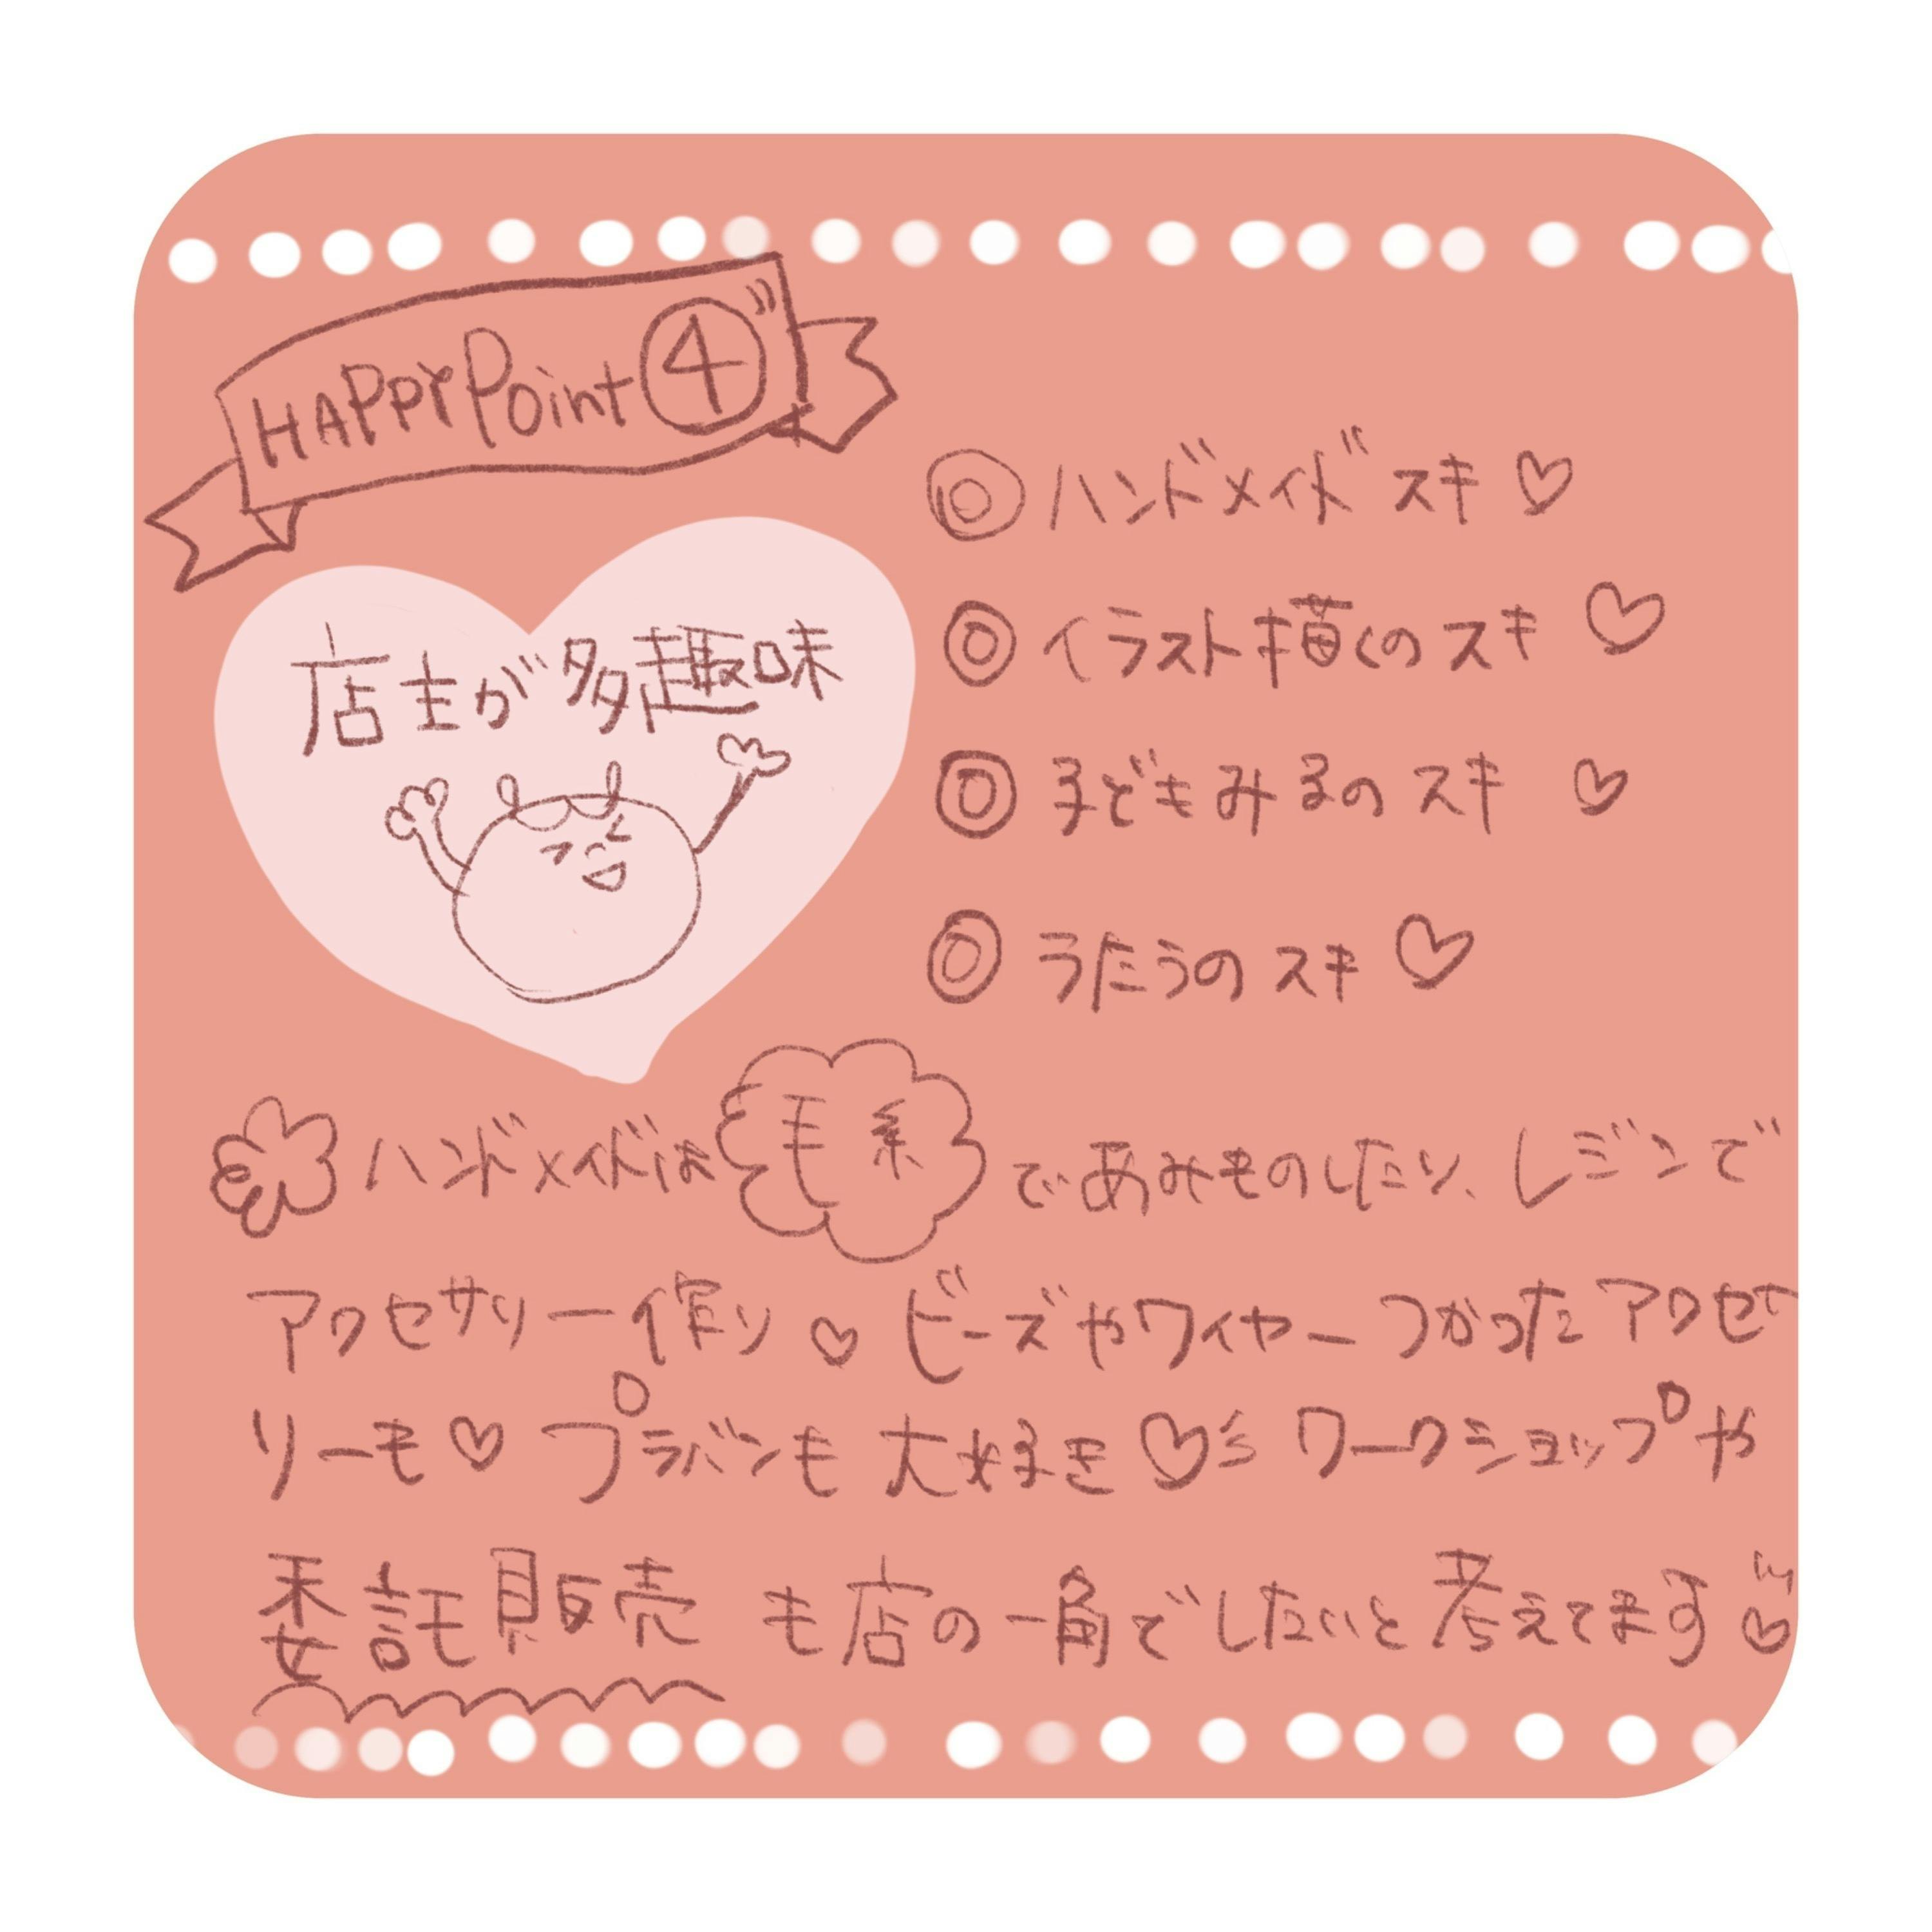 HAPPY Point ④
店主が多趣味
◎ ハンドメイド スキ ♡
◎ イラスト描くの スキ ♡
◎ 子どもみるの スキ ♡
◎ うたうの スキ ♡
ハンドメイドは 毛糸 であみものしたり、レジンで
アクセサリー作り ♡ ビーズやワイヤーつかったアクセサ
リーモ ♡ プラバンも 大好き ♡ ワークショップや
委託販売 も店の一角でしたいと考えてます ♡